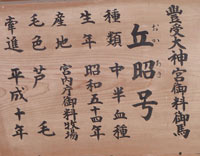 豊受大神宮御料御馬
丘昭号
おか
あき
種類 中半血種
生年 昭和五十四年
産地 宮内庁御料牧場
毛色 芦毛
牽進 平成十年